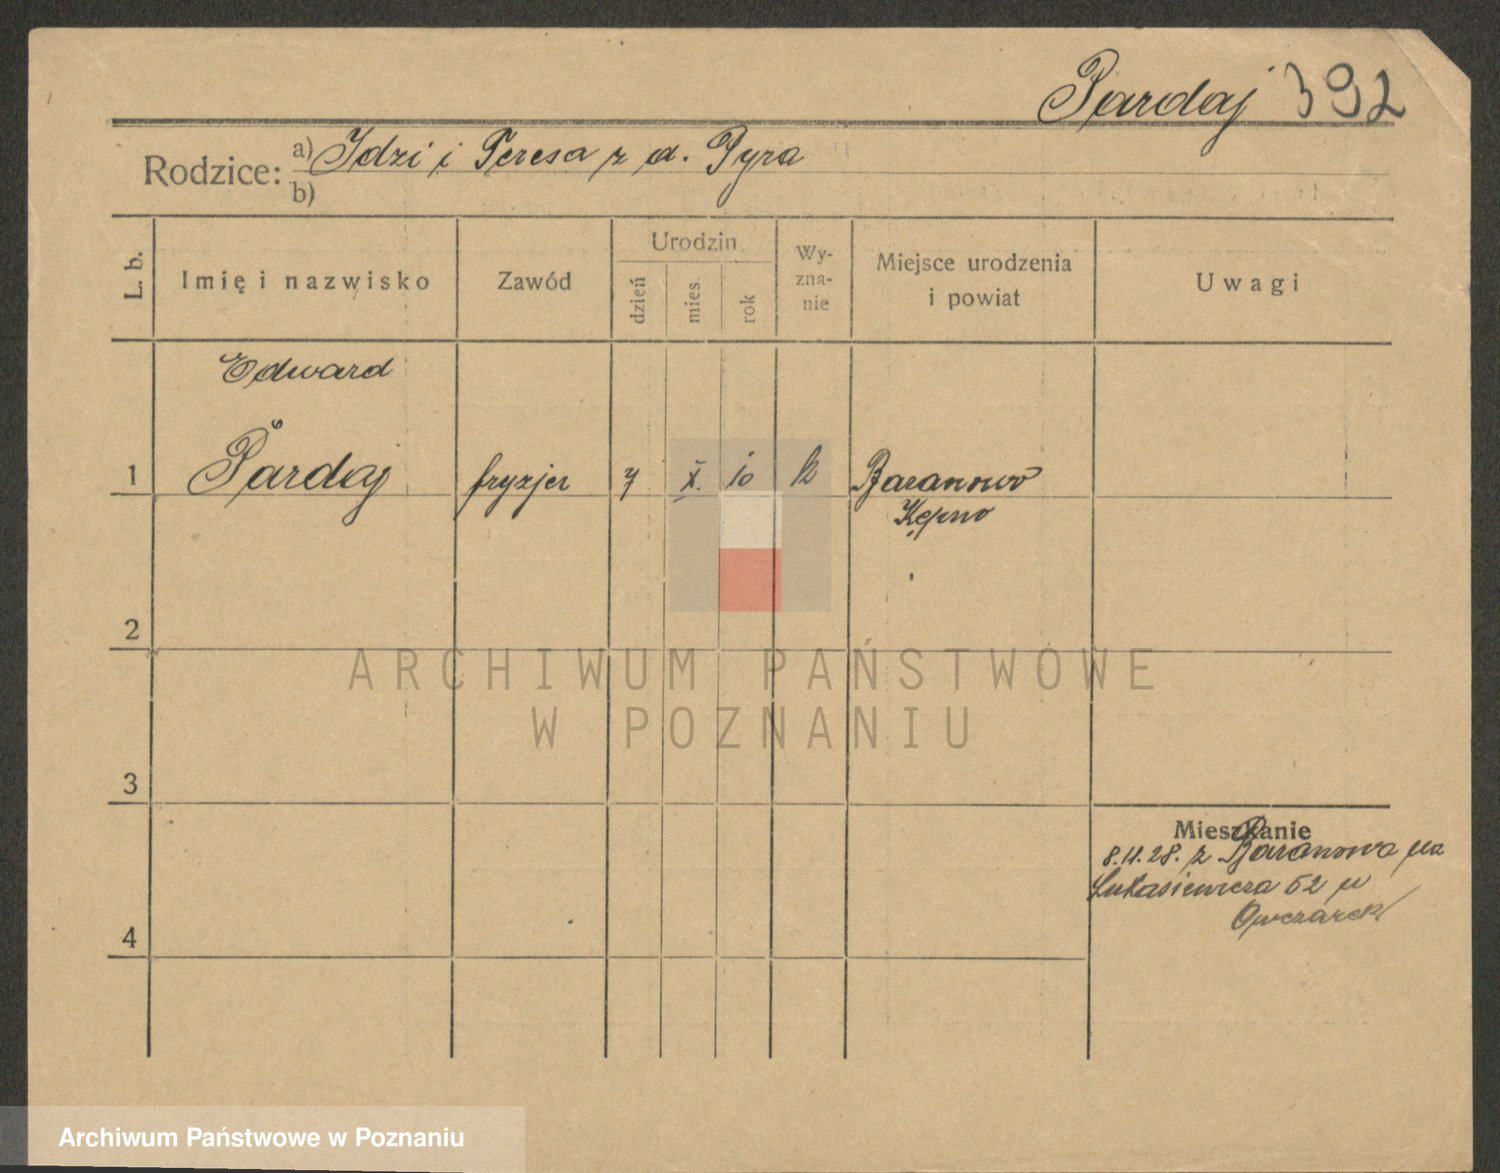 Pardaj 392
Rodzice: a) Idzi i Teresa z d. Pyra
b)
L. b.
Imię i nazwisko
Zawód
Urodzin
dzień
mies.
rok
Wy-
zna-
nie
Miejsce urodzenia
i powiat
Uwagi
Edward
1 Pardaj fryzjer 7 X. 10 k Baranowo
Kępno
2
ARCHIWUM PAŃSTWOWE
W POZNANIU
3
Mieszkanie
8.11.28. z Baranowa na
Łukasiewicza 52 u
Owczarek
4
Archiwum Państwowe w Poznaniu